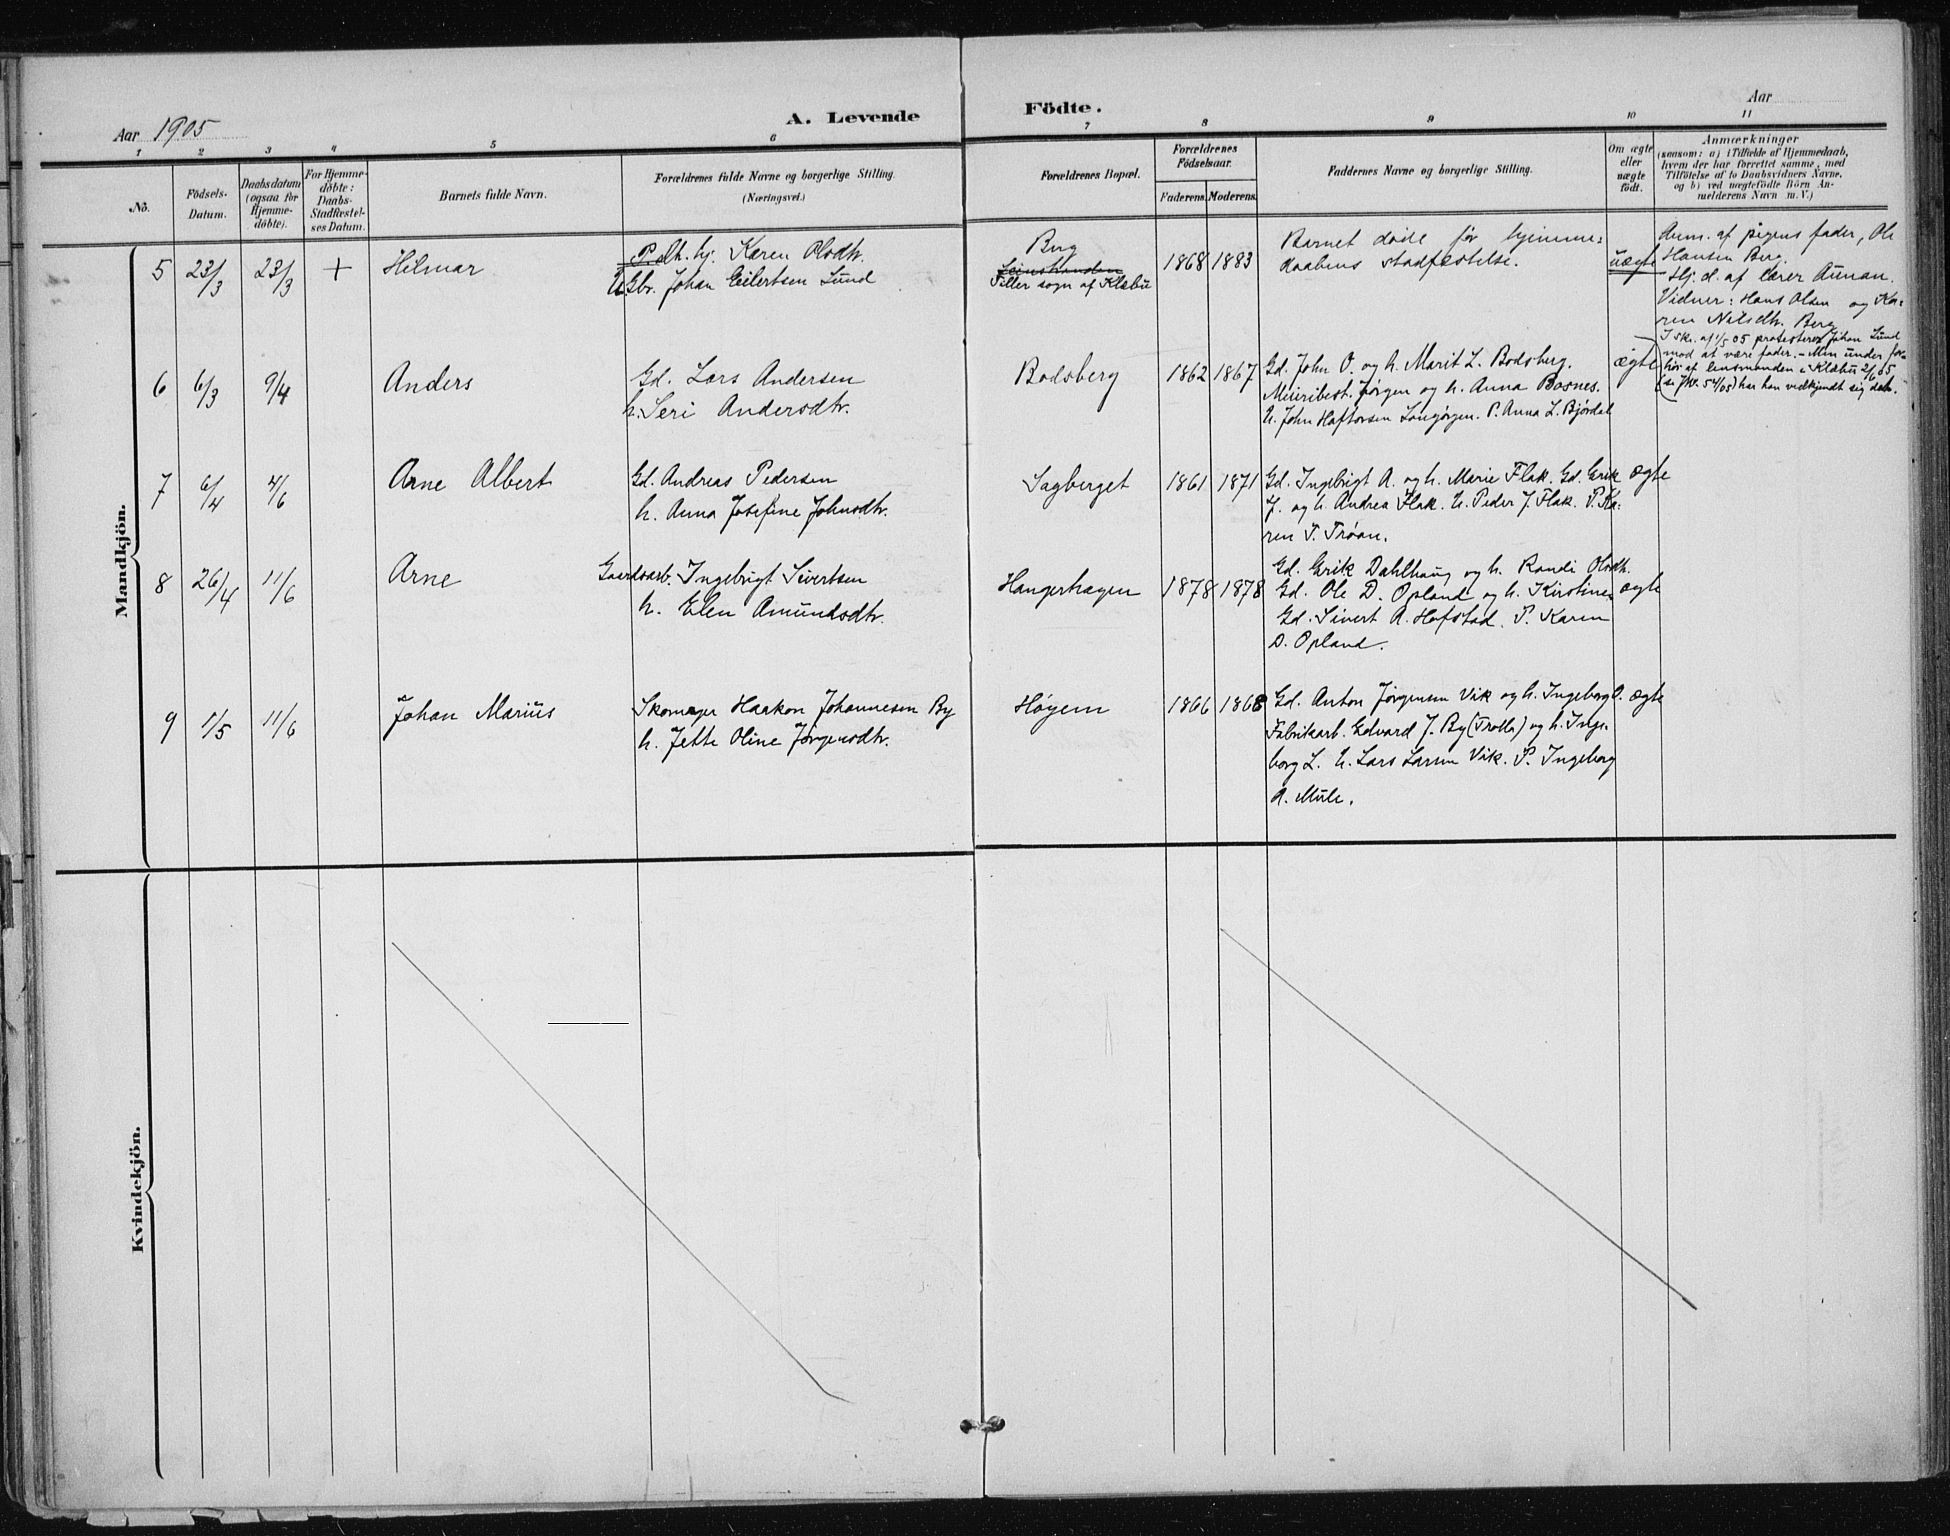 Aar 1905
A. Levende
Födte.
Aar
1 2 3 4 5 6 7 8 9 10 11
No.
Födsels-
Datum.
Daabsdatum
(ogsaa for
Hjemme-
döbte).
For Hjemme-
döbte:
Daabs-
Stadfæstel-
ses Datum.
Barnets fulde Navn.
Forældrenes fulde Navne og borgerlige Stilling.
(Næringsvei.)
Forældrenes Bopæl.
Forældrenes
Födselsaar.
Faderens. Moderens.
Faddernes Navne og borgerlige Stilling.
Om ægte
eller
uægte
födt.
Anmærkninger
(saasom: a) i Tilfælde af Hjemmedaab,
hvem der har forrettet samme, med
Tilföielse af to Daabsvidners Navne,
og b) ved uægtefödte Börn An-
melderens Navn m. V.)
Mandkjön.
5 23/3 23/3 + Hilmar
P. hj. Karen Olsdtr.
U. Gbr. Johan Eilertsen Lund
Berg
Leinstranden
Tiller sogn af Klæbu
1868 1883
Barnet døde før hjemme-
daabens stadfæstelse.
uægte
Anm. af pigens fader, Ole
Hansen Berg.
Hj. d. af lærer Aunan.
Vidner: Hans Olsen og Ka-
ren Nilsdtr. Berg
I skr. af 1/5 05 protesterer Johan Lund
mod at være fader. - Men under for-
hör af lensmanden i Klæbu 2/6 05
(se Jkv. 54/05) har han vedkjendt sig det.
6 6/3 9/4 Anders
Gd. Lars Andersen
h. Seri Andersdtr.
Bodsberg
1862 1867
Gd. John O. og h. Marit L. Bodsberg.
Meieribest. Jørgen og h. Anna Bosnes.
U. John Haftorsen Langørgen. P. Anna L. Bjørdal
ægte
7 6/4 4/6 Arne Albert
Gd. Andreas Pedersen
h. Anna Josefine Johnsdtr.
Sagberget
1861 1871
Gd. Ingebrigt A. og h. Marie Flak. Gd. Erik
J. og h. Andrea Flak. U. Peder J. Flak. P. Ka-
ren T. Trøan.
ægte
8 26/4 11/6 Arne
Gaardsarb. Ingebrigt Sivertsen
h. Elen Amundsdtr.
Hangerhagen
1878 1878
Gd. Erik Dahlhaug og h. Randi Olsdtr.
Gd. Ole D. Opland og h. Kirstine.
Gd. Sivert A. Hofstad. P. Karen
D. Opland.
ægte
9 1/5 11/6 Johan Marius
Skomager Haakon Johannesen By
h. Jette Oline Jørgensdtr.
Høyem
1866 1868
Gd. Anton Jørgensen Vik og h. Ingeborg O.
Fabrikarb. Edvard J. By (Trolla) og h. Inge-
borg L. U. Lars Larsen Vik. P. Ingeborg
A. Mule.
ægte
Kvindekjön.